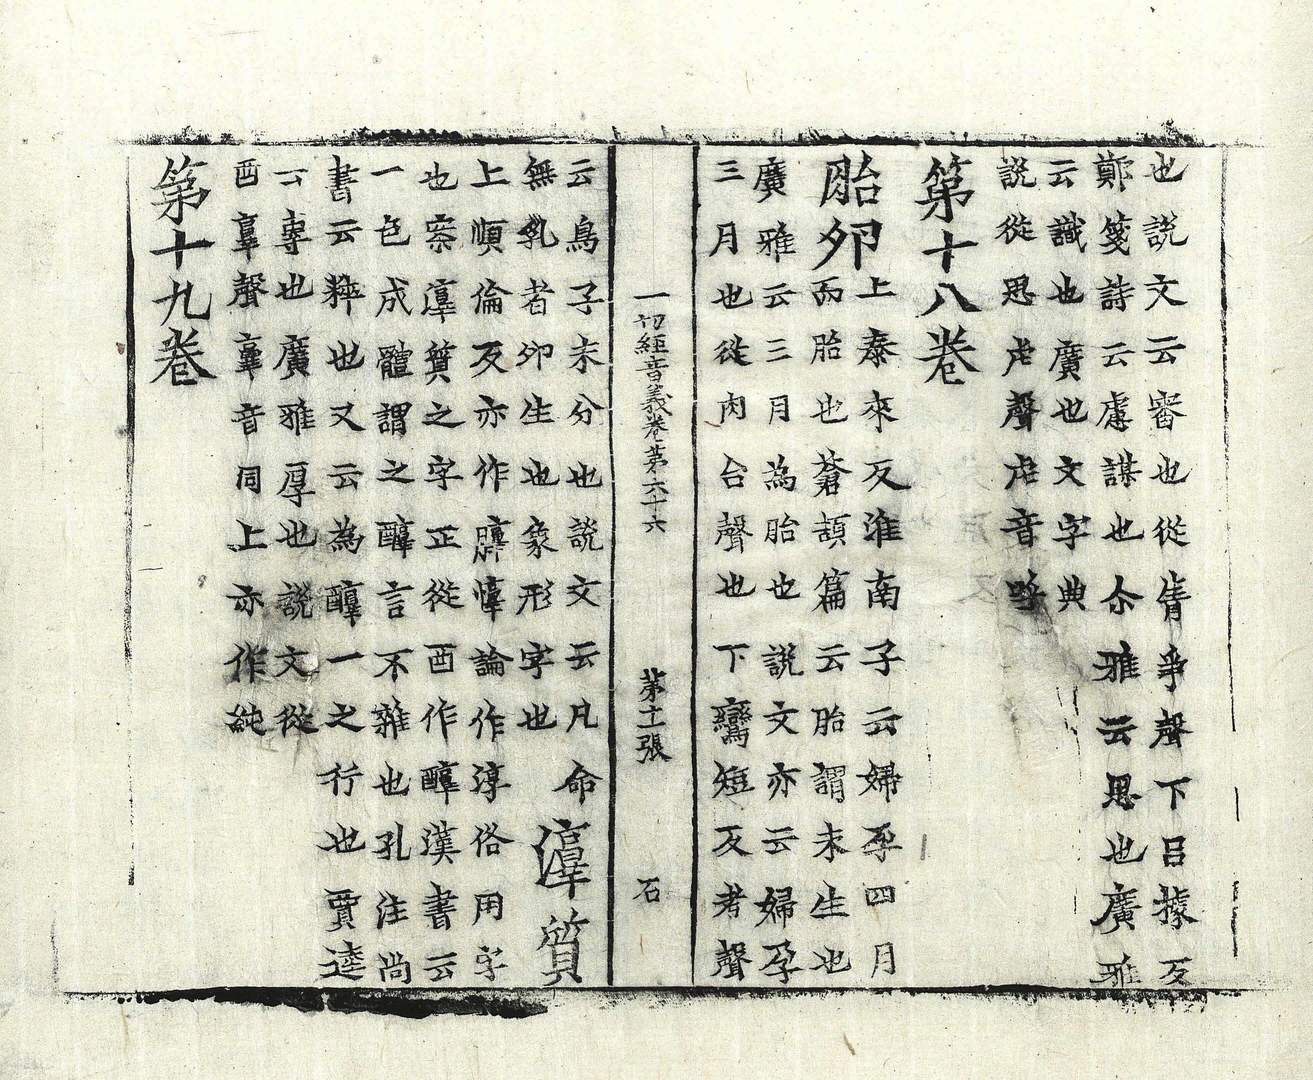 也說文云審也從言爭聲下呂據反
鄭箋詩云慮謀也尒雅云思也廣雅
云議也廣也文字典
說從思虍聲虍音呼
第十八卷
胎卵上泰來反淮南子云婦孕四月
而胎也蒼頡篇云胎謂未生也
廣雅云三月為胎也說文亦云婦孕
三月也從肉台聲也下鸞短反者聲
一切經音義卷第六十六 第十一張 石
云鳥子未分也說文云凡命
無乳者卵生也象形字也 㵭質
上順倫反亦作𨣁惇論作淳俗用字
也案㵭質之字正從酉作醇漢書云
一色成體謂之醇言不雜也孔注尚
書云粹也又云為醇一之行也賈逵
云專也廣雅厚也說文從
酉𦎫聲𦎫音同上亦作純
第十九卷